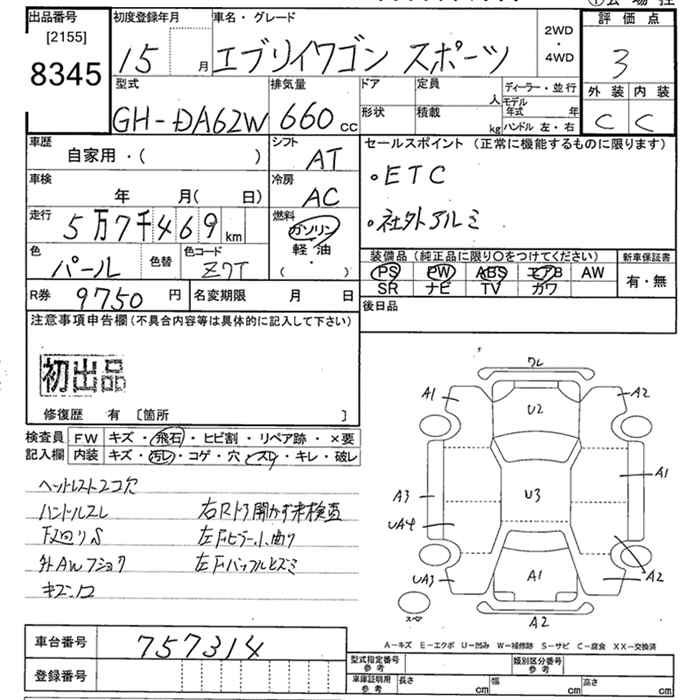 出品番号 初度登録年月 車名・グレード 評価点
[2155] 2WD
8345 15 月 エブリイワゴン スポーツ ・ 3
4WD
型式 排気量 ドア 定員 ディーラー・並行 外装 内装
人 モデル年式 年
GH-DA62W 660 cc 形状 積載 kg ハンドル 左・右 C C
車歴 シフト セールスポイント (正常に機能するものに限ります)
自家用・( ) AT ・ETC
車検 冷房
年 月( 日) AC ・社外アルミ
走行 燃料
5万7千469 km ガソリン
色 色替 色コード 軽・油 装備品 (純正品に限り○をつけてください) 新車保証書
パール Z7T ( ・ ) PS PW ABS エアB AW 有・無
R券 9750 円 名変期限 月 日 SR ナビ TV カワ
注意事項申告欄(不具合内容等は具体的に記入して下さい) 後日品
初出品
修復歴 有 [箇所 ]
検査員 FW キズ・飛石・ヒビ割・リペア跡・×要
記入欄 内装 キズ・汚レ・コゲ・穴・スレ・キレ・破レ
ヘットレスト2コ穴
ハンドルスレ 右Rドア開かず未検査
下廻りS 左Fピラー小曲り
外AWフショク 左Fバッフルヒズミ
ワレ
A1 A2
U2
A1
A3 U3
UA4
UA3 A1 A2
スペア
A2
車台番号 757314 A-キズ E-エクボ U-凹み W-補修跡 S-サビ C-腐食 XX-交換済
登録番号 型式指定番号 参考 類別区分番号 参考
車庫証明用 参考 長さ cm 幅 cm 高さ cm